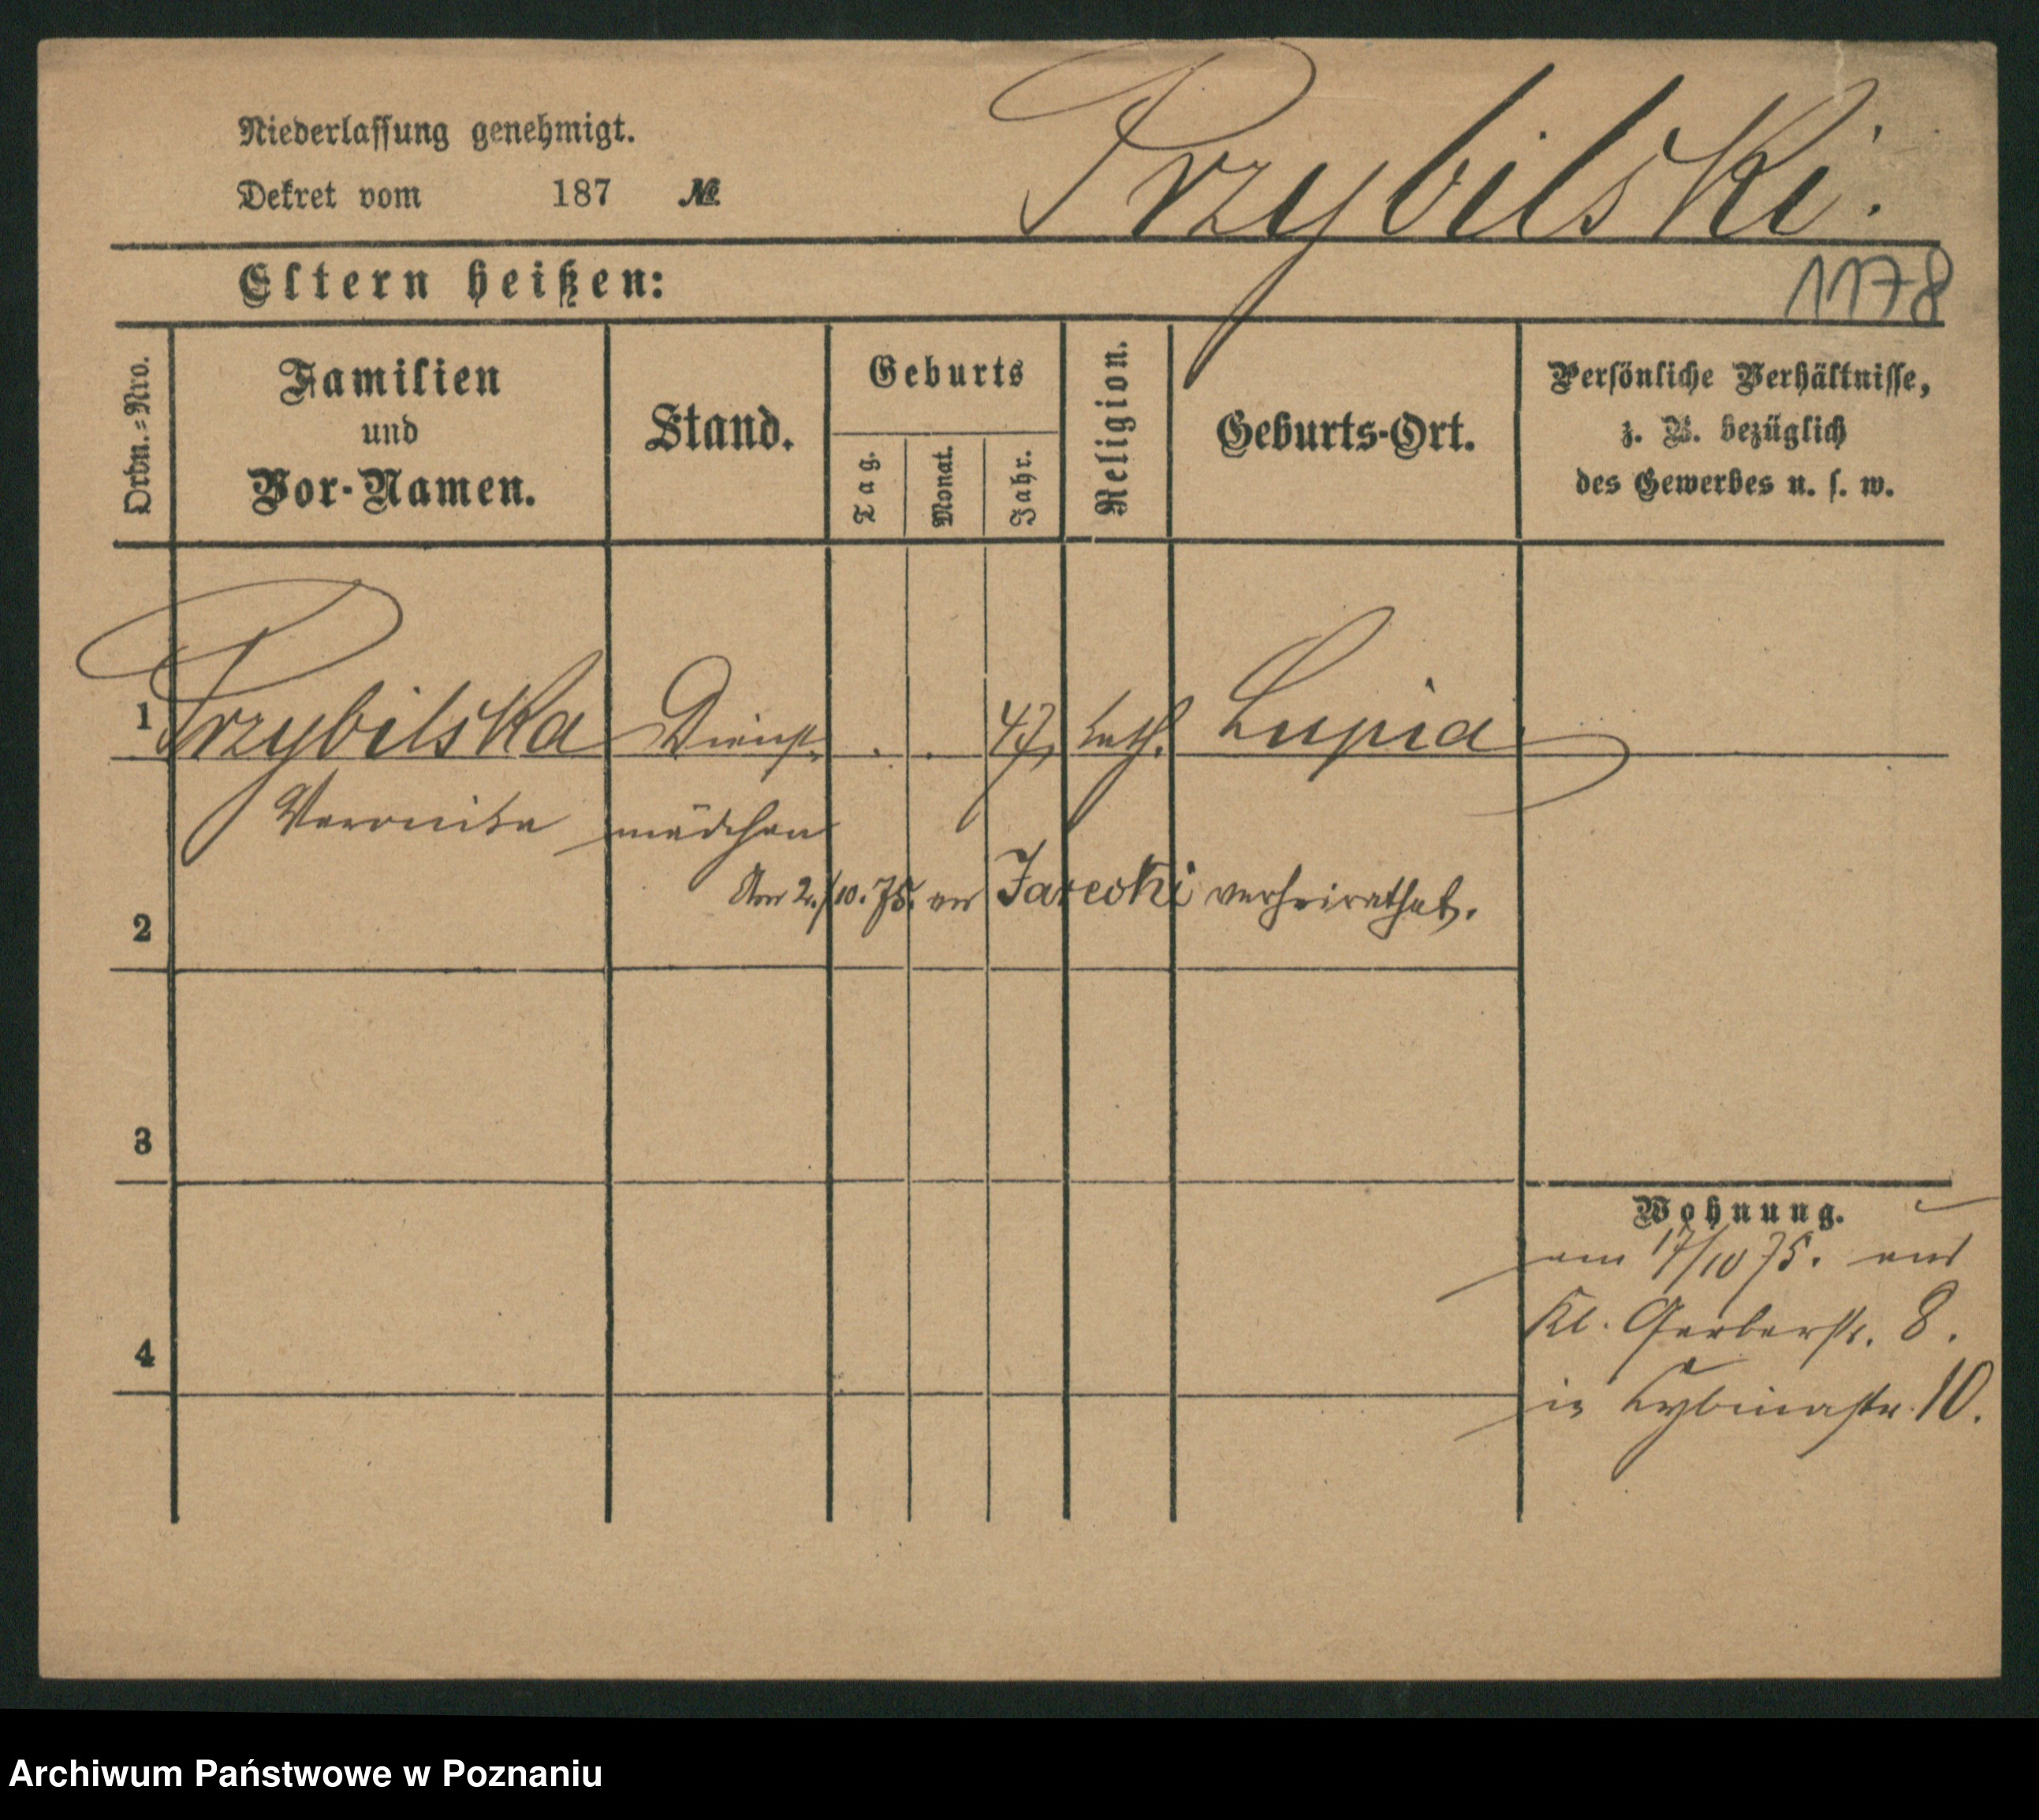 Niederlassung genehmigt.
Dekret vom 187 №
Przybilski.
1178
Eltern heißen:
Ordn.=Nro.
Familien
und
Vor-Namen.
Stand.
Geburts
Tag.
Monat.
Jahr.
Religion.
Geburts-Ort.
Persönliche Verhältnisse,
z. B. bezüglich
des Gewerbes u. s. w.
1 Przybilska Dienst- . . 47, kath. Lupia
Veronika mädchen
Am 2./10. 75. an Jarecki verheirathet.
2
3
4
Wohnung.
am 17/10 75. aus
Kl. Gerberstr. 8.
in Cybinastr. 10.
Archiwum Państwowe w Poznaniu